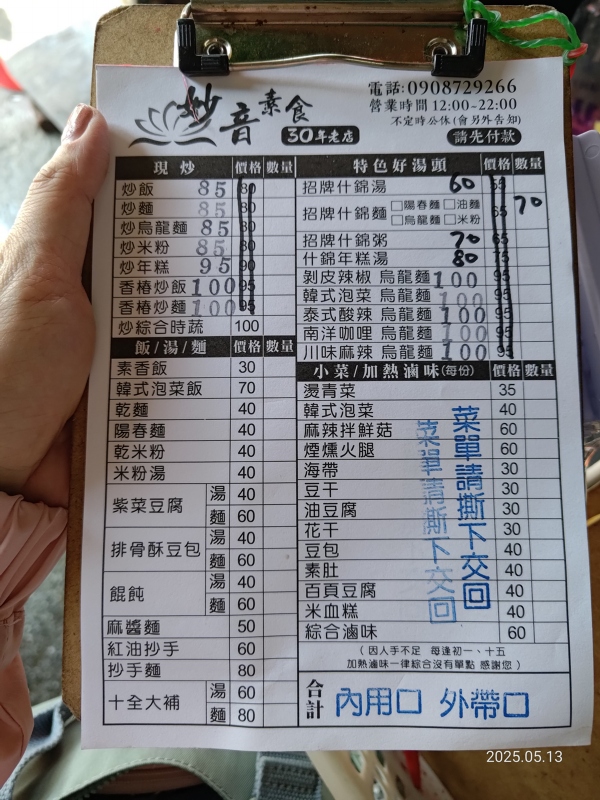 妙音素食
30年老店
電話:0908729266
營業時間 12:00~22:00
不定時公休(會另外告知)
請先付款
現炒 價格 數量
炒飯 85 80
炒麵 85 80
炒烏龍麵 85 80
炒米粉 85 80
炒年糕 95 90
香樁炒飯 100 95
香樁炒麵 100 95
炒綜合時蔬 100
飯/湯/麵 價格 數量
素香飯 30
韓式泡菜飯 70
乾麵 40
陽春麵 40
乾米粉 40
米粉湯 40
紫菜豆腐 湯 40
麵 60
排骨酥豆包 湯 40
麵 60
餛飩 湯 40
麵 60
麻醬麵 50
紅油抄手 60
抄手麵 80
十全大補 湯 60
麵 80
特色好湯頭 價格 數量
招牌什錦湯 60 55
招牌什錦麵 □陽春麵 □油麵 65 70
□烏龍麵 □米粉
招牌什錦粥 70 65
什錦年糕湯 80 75
剝皮辣椒 烏龍麵 100 95
韓式泡菜 烏龍麵 100 95
泰式酸辣 烏龍麵 100 95
南洋咖哩 烏龍麵 100 95
川味麻辣 烏龍麵 100 95
小菜/加熱滷味(每份) 價格 數量
燙青菜 35
韓式泡菜 40
麻辣拌鮮菇 60
煙燻火腿 60
海帶 30
豆干 30
油豆腐 30
花干 30
豆包 40
素肚 40
百頁豆腐 40
米血糕 40
綜合滷味 60
菜單請撕下交回
菜單請撕下交回
(因人手不足 每逢初一、十五
加熱滷味一律綜合沒有單點 感謝您)
合計 內用□ 外帶□
2025.05.13